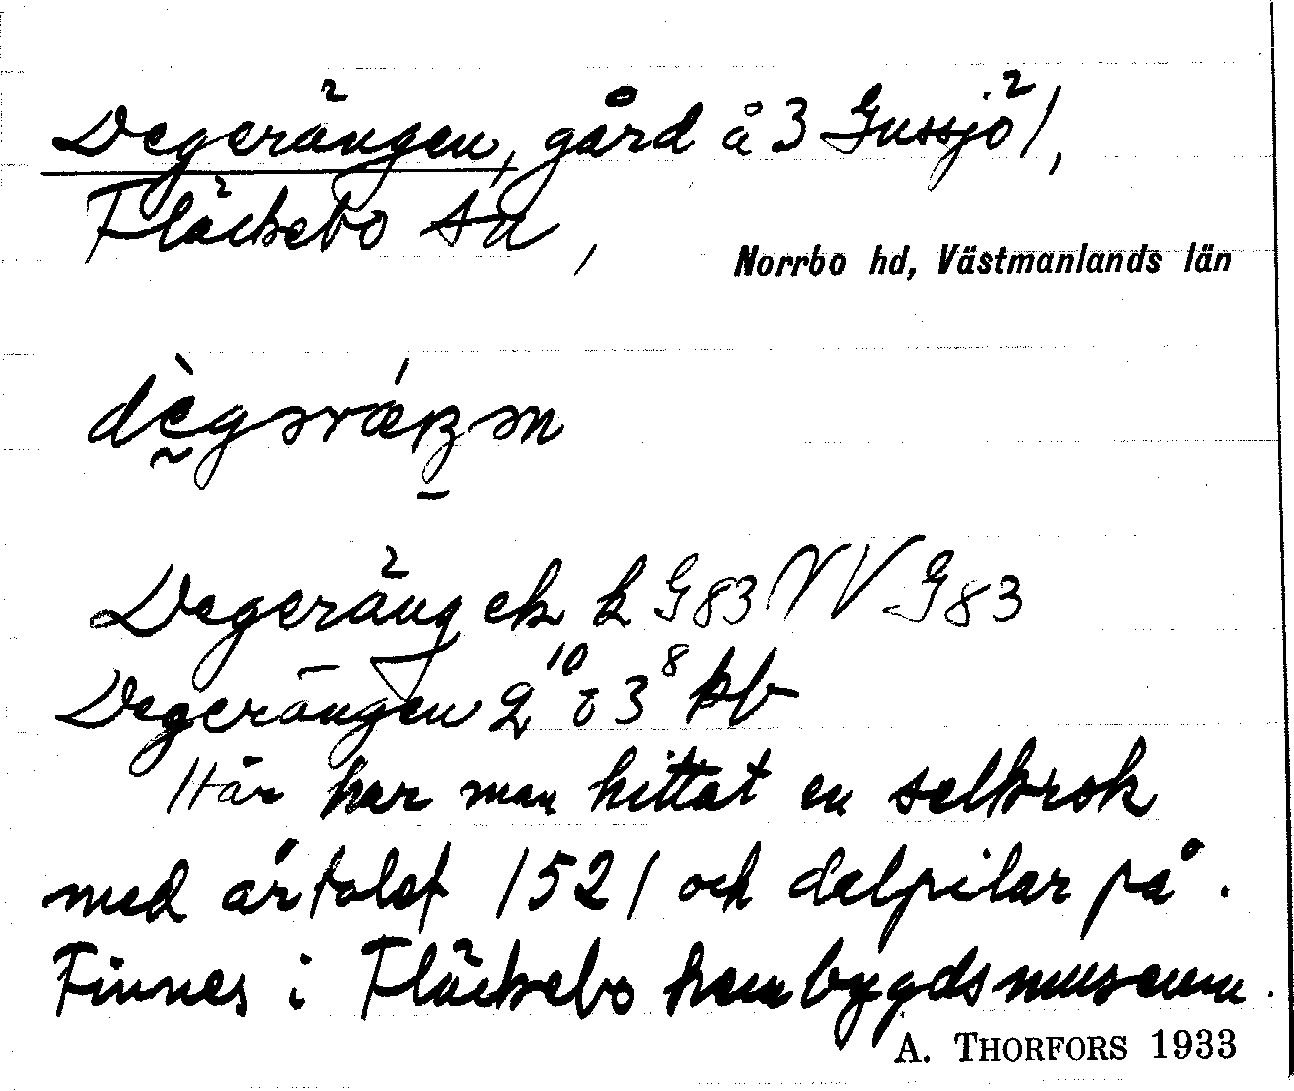 Degerängen, gård å 3 Gussjö /,
Fläckebo sn,
Norrbo hd, Västmanlands län
dègərǽŋən
Degeräng ek k G83 VV G83
Degerängen 2¹⁰ o 3⁸ kb
Här har man hittat en selkrok
med årtalet 1521 och dalpilar på.
Finnes i Fläckebo hembygdsmuseum.
A. THORFORS 1933